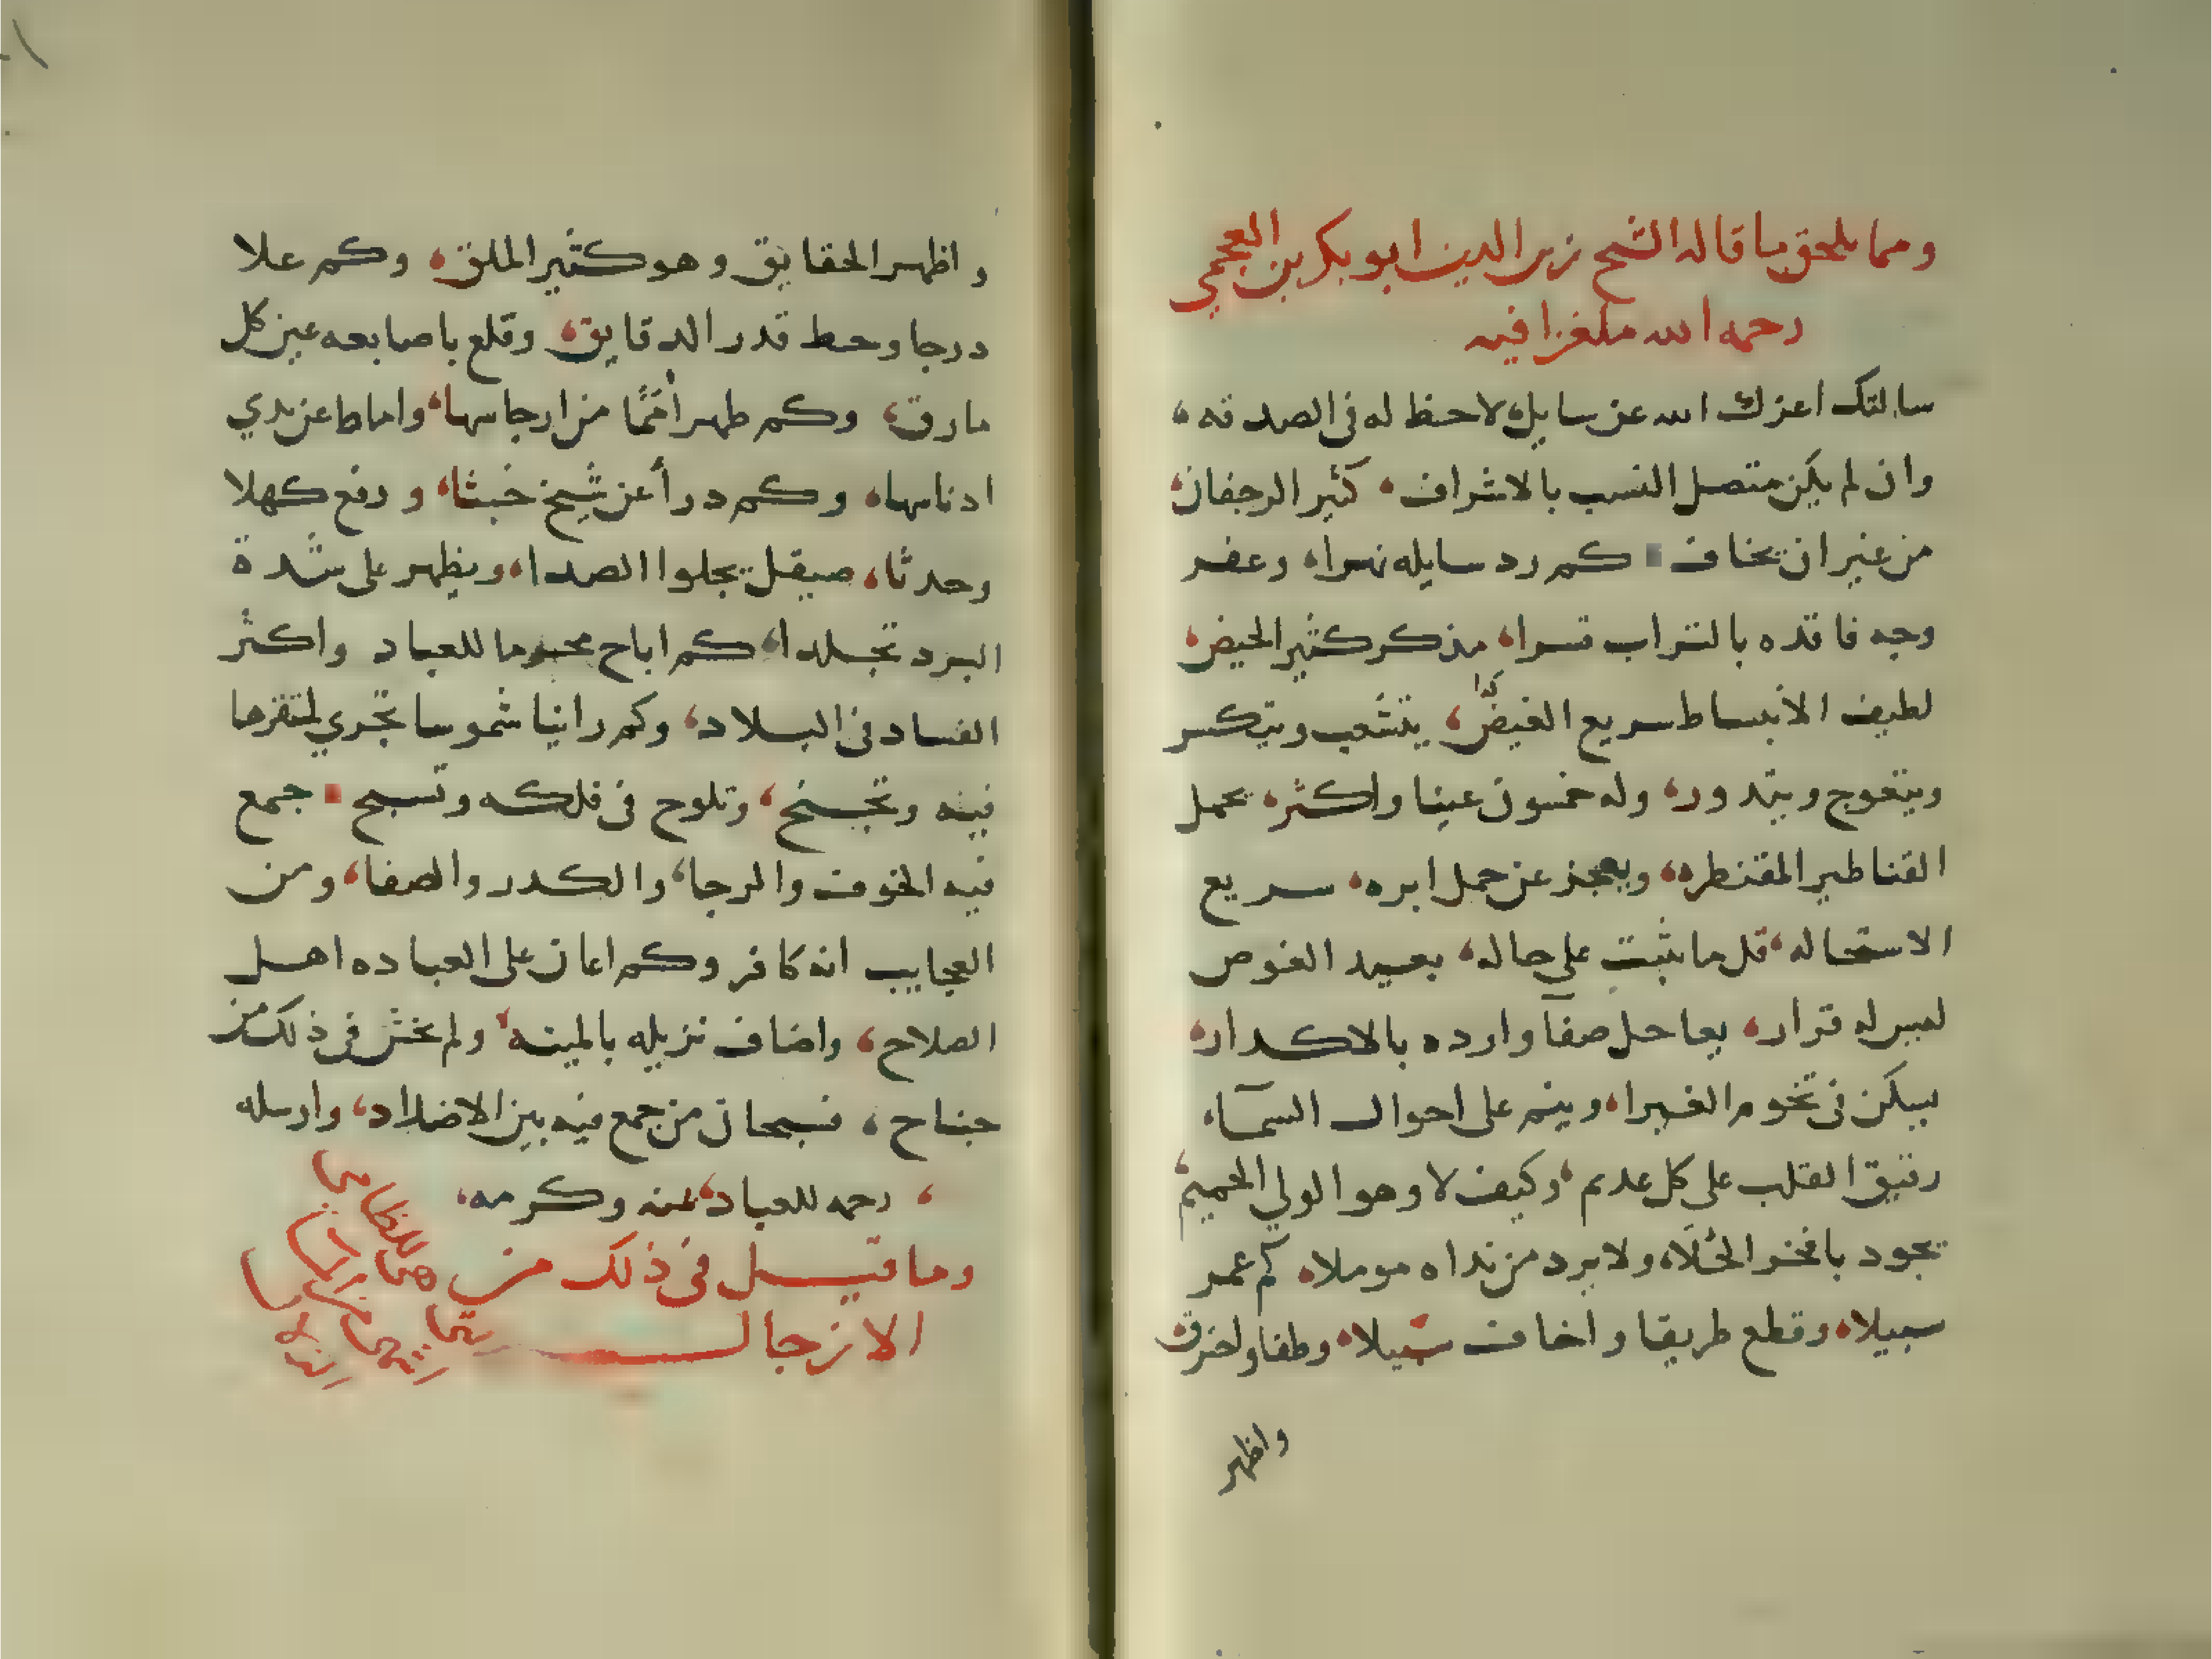 ومما يلحق بما قاله الشيخ زين الدين ابو بكر بن العجمي
رحمه الله ملغزا فيه
سالتك اعزك الله عن سايل، لاحظ له في الصدقه،
وان لم يكن متصل النسب بالاشراف، كثير الرجفان،
من غير ان يخاف كم رد سايله نهرا، وعفر
وجه فاقده بالتراب قسرا، مذكر كثير الحيض،
لطيف الانبساط سريع الغيض، يتشعب ويتكسر
ويتعوج ويتدور، وله خمسون عينا واكثر، يحمل
القناطير المقنطره، ويعجز عن حمل ابره، سريع
الاستحاله، قل ما يثبت على حاله، بعيد الغوص
ليس له قرار، يعاجل صفا وارده بالاكدار،
يسكن في تخوم الغبرا، وينم على احوال السماء،
رقيق القلب على كل عديم، وكيف لا وهو الولي الحميم،
يجود بافخر الحلا، ولا يرد من نداه موملا، كم عمر
سبيلا، وقطع طريقا واخاف سبيلا، وطفا واغرق
واظهر
واظهر الحقايق وهو كثير الملق، وكم علا
درجا وحط قدر الدقايق، وقلع باصابعه عين كل
مارق، وكم طهر امما من ارجاسها، واماط عن بدي
ادناسها، وكم درأ عن شيخ خبثا، ورفع كهلا
وحدثا، صيقل يجلوا الصدا، ويظهر على شدة
البرد تجلدا، كم اباح محرما للعباد واكثر
الفساد في البلاد، وكم راينا شموسا تجري لمستقرها
فيه وتجنح، وتلوح في فلكه وتسبح جمع
فيه الخوف والرجا، والكدر والصفا، ومن
العجايب انه كافر وكم اعان على العباده اهل
الصلاح، واضاف نزيله بالميته، ولم يخش في ذلك من
جناح، فسبحان من جمع فيه بين الاضداد، وارسله
، رحمه للعباد، منه وكرمه،
وما قيل في ذلك من
الازجال